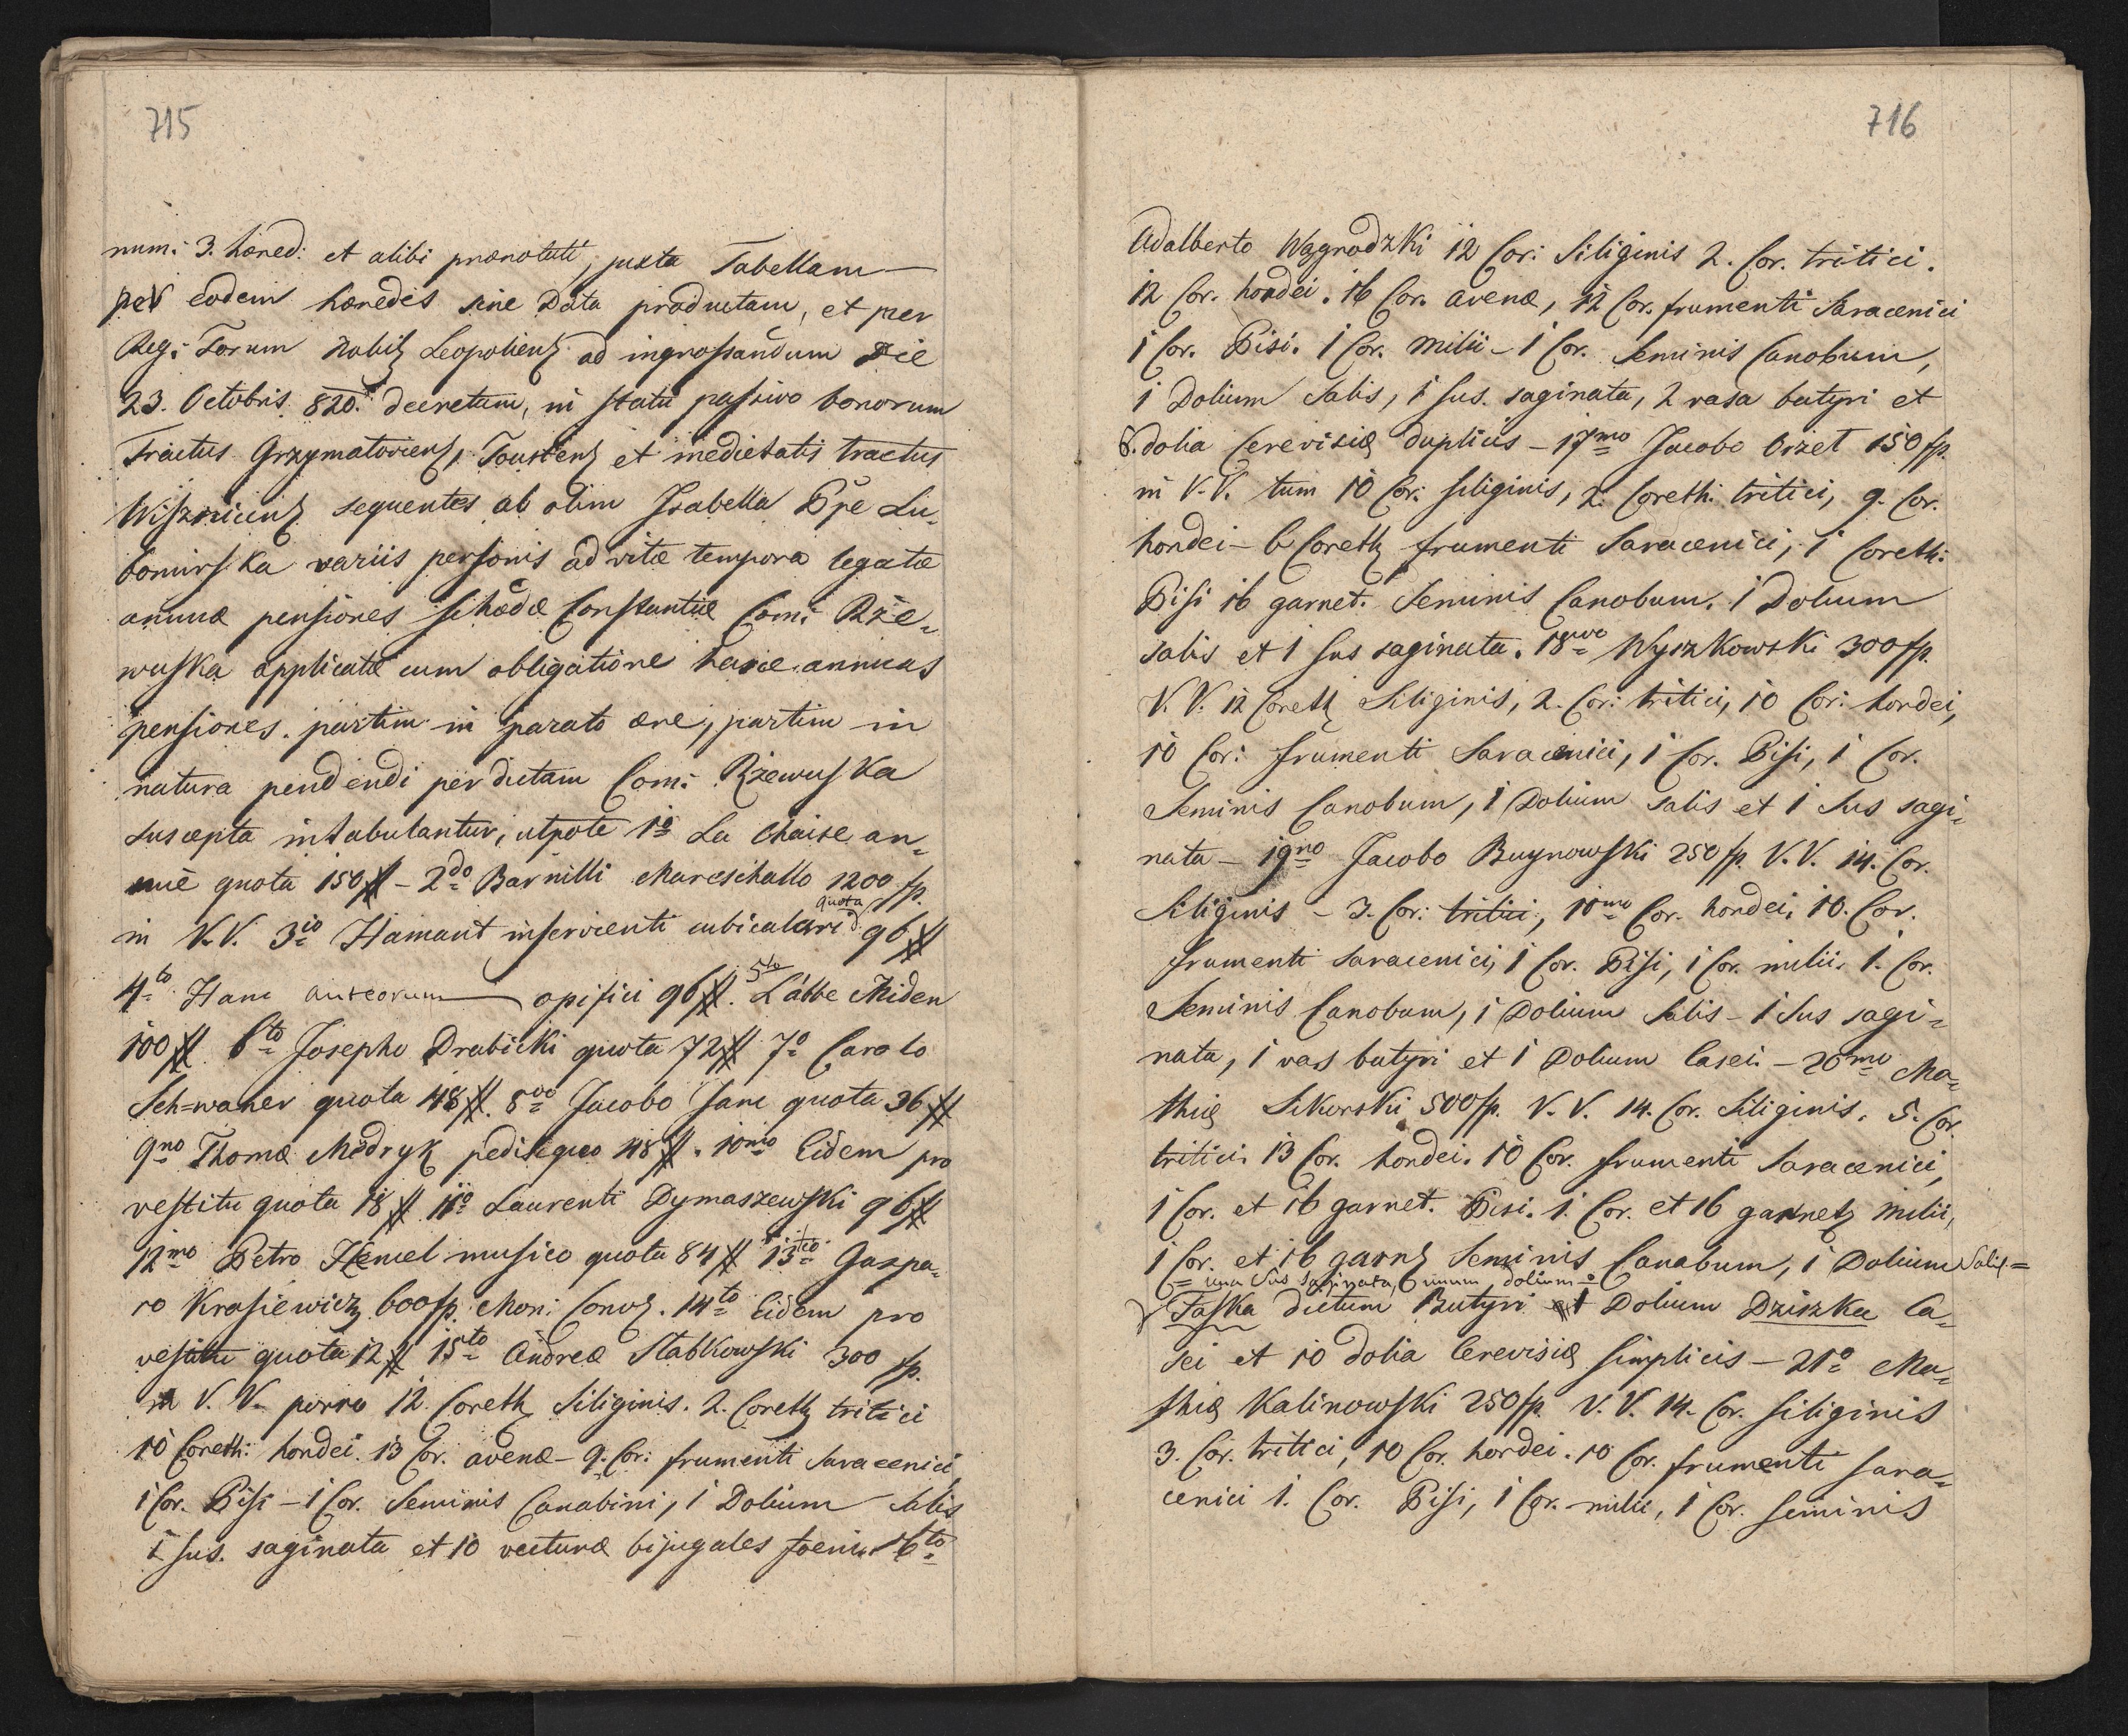 715
num: 3. hæred: et alibi prænotati, juxta Tabellam
per eodem hæredes sine Data productam, et per
Reg: Forum Nobilz Leopoliensz ad ingrossandum Die
23. Octobris 820. decretum, in statu passivo bonorum
Tractus Grzymatoviensz, Toustensz et medietatis tractus
Wiszniciensz sequentes ab olim Isabella Ppe Lu=
bomirska variis personis ad vitæ tempora legatæ
annuæ pensiones schedæ Constantiæ Com: Rže=
wuska applicatæ cum obligatione hasce annuas
pensiones. partim in parato ære, partim in
natura pendendi per dictam Com: Rżewuska
suscepta intabulantur, utpote 1o La Chaise an=
nue quota 150 # - 2do Barnilli Mareschallo 1200 fp.
in V.V. 3io Hamant inservienti cubiculario quota 96 #
4to Hani aureorum opifici 96 #. 5to L'abbe Miden
100 # 6to Josepho Drabicki quota 72 # 7o Carolo
Sch=waner quota 48 #. 8vo Jacobo Jani quota 36 #
9no Thomæ Mędryk pedisequo 48 #. 10mo Eidem pro
vestitu quota 18 # 11o Laurenti Dymaszewski 96 #
12mo Petro Hemel musico quota 84 # 13tio Gaspa=
ro Krasiewicz 600 fp. Mon: Convz. 14to Eidem pro
vestitu quota 12 # 15to Andreæ Stabkowski 300 fp.
in V. V. porro 12. Coretz Siliginis. 2. Coretz tritici
10 Coreth: hordei. 13 Cor. avenæ - 9. Cor: frumenti Saracenici
1 Cor. Pisi - 1 Cor. Seminis Canabini, 1 Dolium Salis
1 sus. saginata et 10 vecturæ bijugales foeni. 16to
716
Adalberto Wągrodzki 12 Cor: Siliginis 2. Cor. tritici.
12 Cor. hordei. 16 Cor. avenæ, 12 Cor. frumenti Saracenici
1 Cor. Pisi. 1 Cor. Milii - 1 Cor. Seminis Canobum,
1 Dolium Salis, 1 sus. saginata, 2 vasa butyri et
6. dolia Cerevisiæ duplicis - 17mo Jacobo Orzet 150 fp.
in V.V. tum 10 Cor: siliginis, 2. Coreth: tritici, 9. Cor.
hordei - 6 Coretz frumenti Saracenici, 1 Coreth:
Pisi 16 garnet. Seminis Canobum. 1 Dolium
salis et 1 sus saginata. 18vo Wyszkowski 300 fp.
V. V. 12 Coretz Siliginis, 2. Cor: tritici, 10 Cor: hordei,
10 Cor: frumenti Saracenici, 1 Cor. Pisi, 1 Cor.
Seminis Canobum, 1 Dolium salis et 1 Sus sagi=
nata - 19no Jacobo Buynowski 250 fp. V.V. 14. Cor.
Siliginis - 3. Cor: tritici, 10mo Cor. hordei. 10. Cor.
frumenti Saracenici, 1 Cor. Pisi, 1 Cor. milii. 1. Cor.
Seminis Canobum, 1 Dolium Salis - 1 Sus sagi=
nata, 1 vas butyri et 1 Dolium Casei. - 20mo Ma=
thiæ Sikorski 500 fp. V. V. 14. Cor. Siliginis. 5. Cor.
tritici. 13 Cor. hordei. 10 Cor. frumenti Saracenici,
1 Cor. et 16 garnet. Pisi. 1. Cor. et 16 garnetz Milii,
1 Cor. et 16 garnz Seminis Canabum, 1 Dolium Salis=
= una Sus saginata, unum dolium =
Faska dictum Butyri et 1 Dolium Dziszka Ca=
sei et 10 dolia Cerevisiæ simplicis - 21o Ma=
thiæ Kalinowski 250 fp. V. V. 14. Cor. siliginis
3. Cor. tritici, 10 Cor. hordei. 10 Cor. frumenti sara=
cenici 1. Cor. Pisi, 1 Cor. milii, 1 Cor. seminis